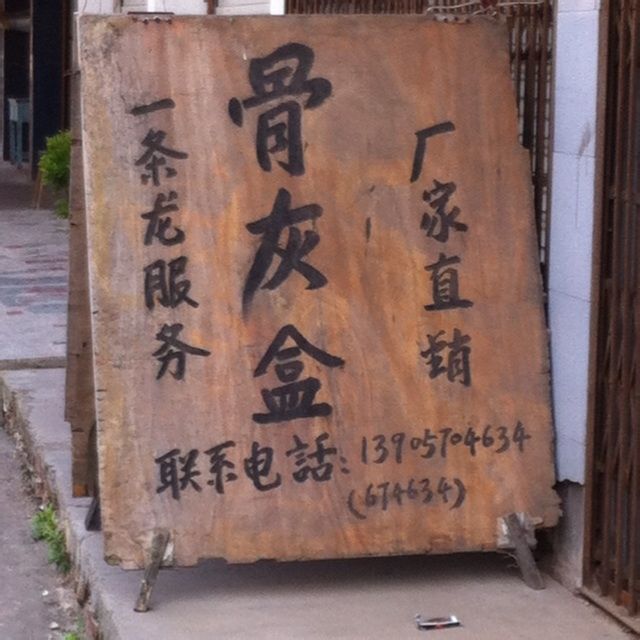 骨灰盒
厂家直销
一条龙服务
联系电話：13905704634
(674634)